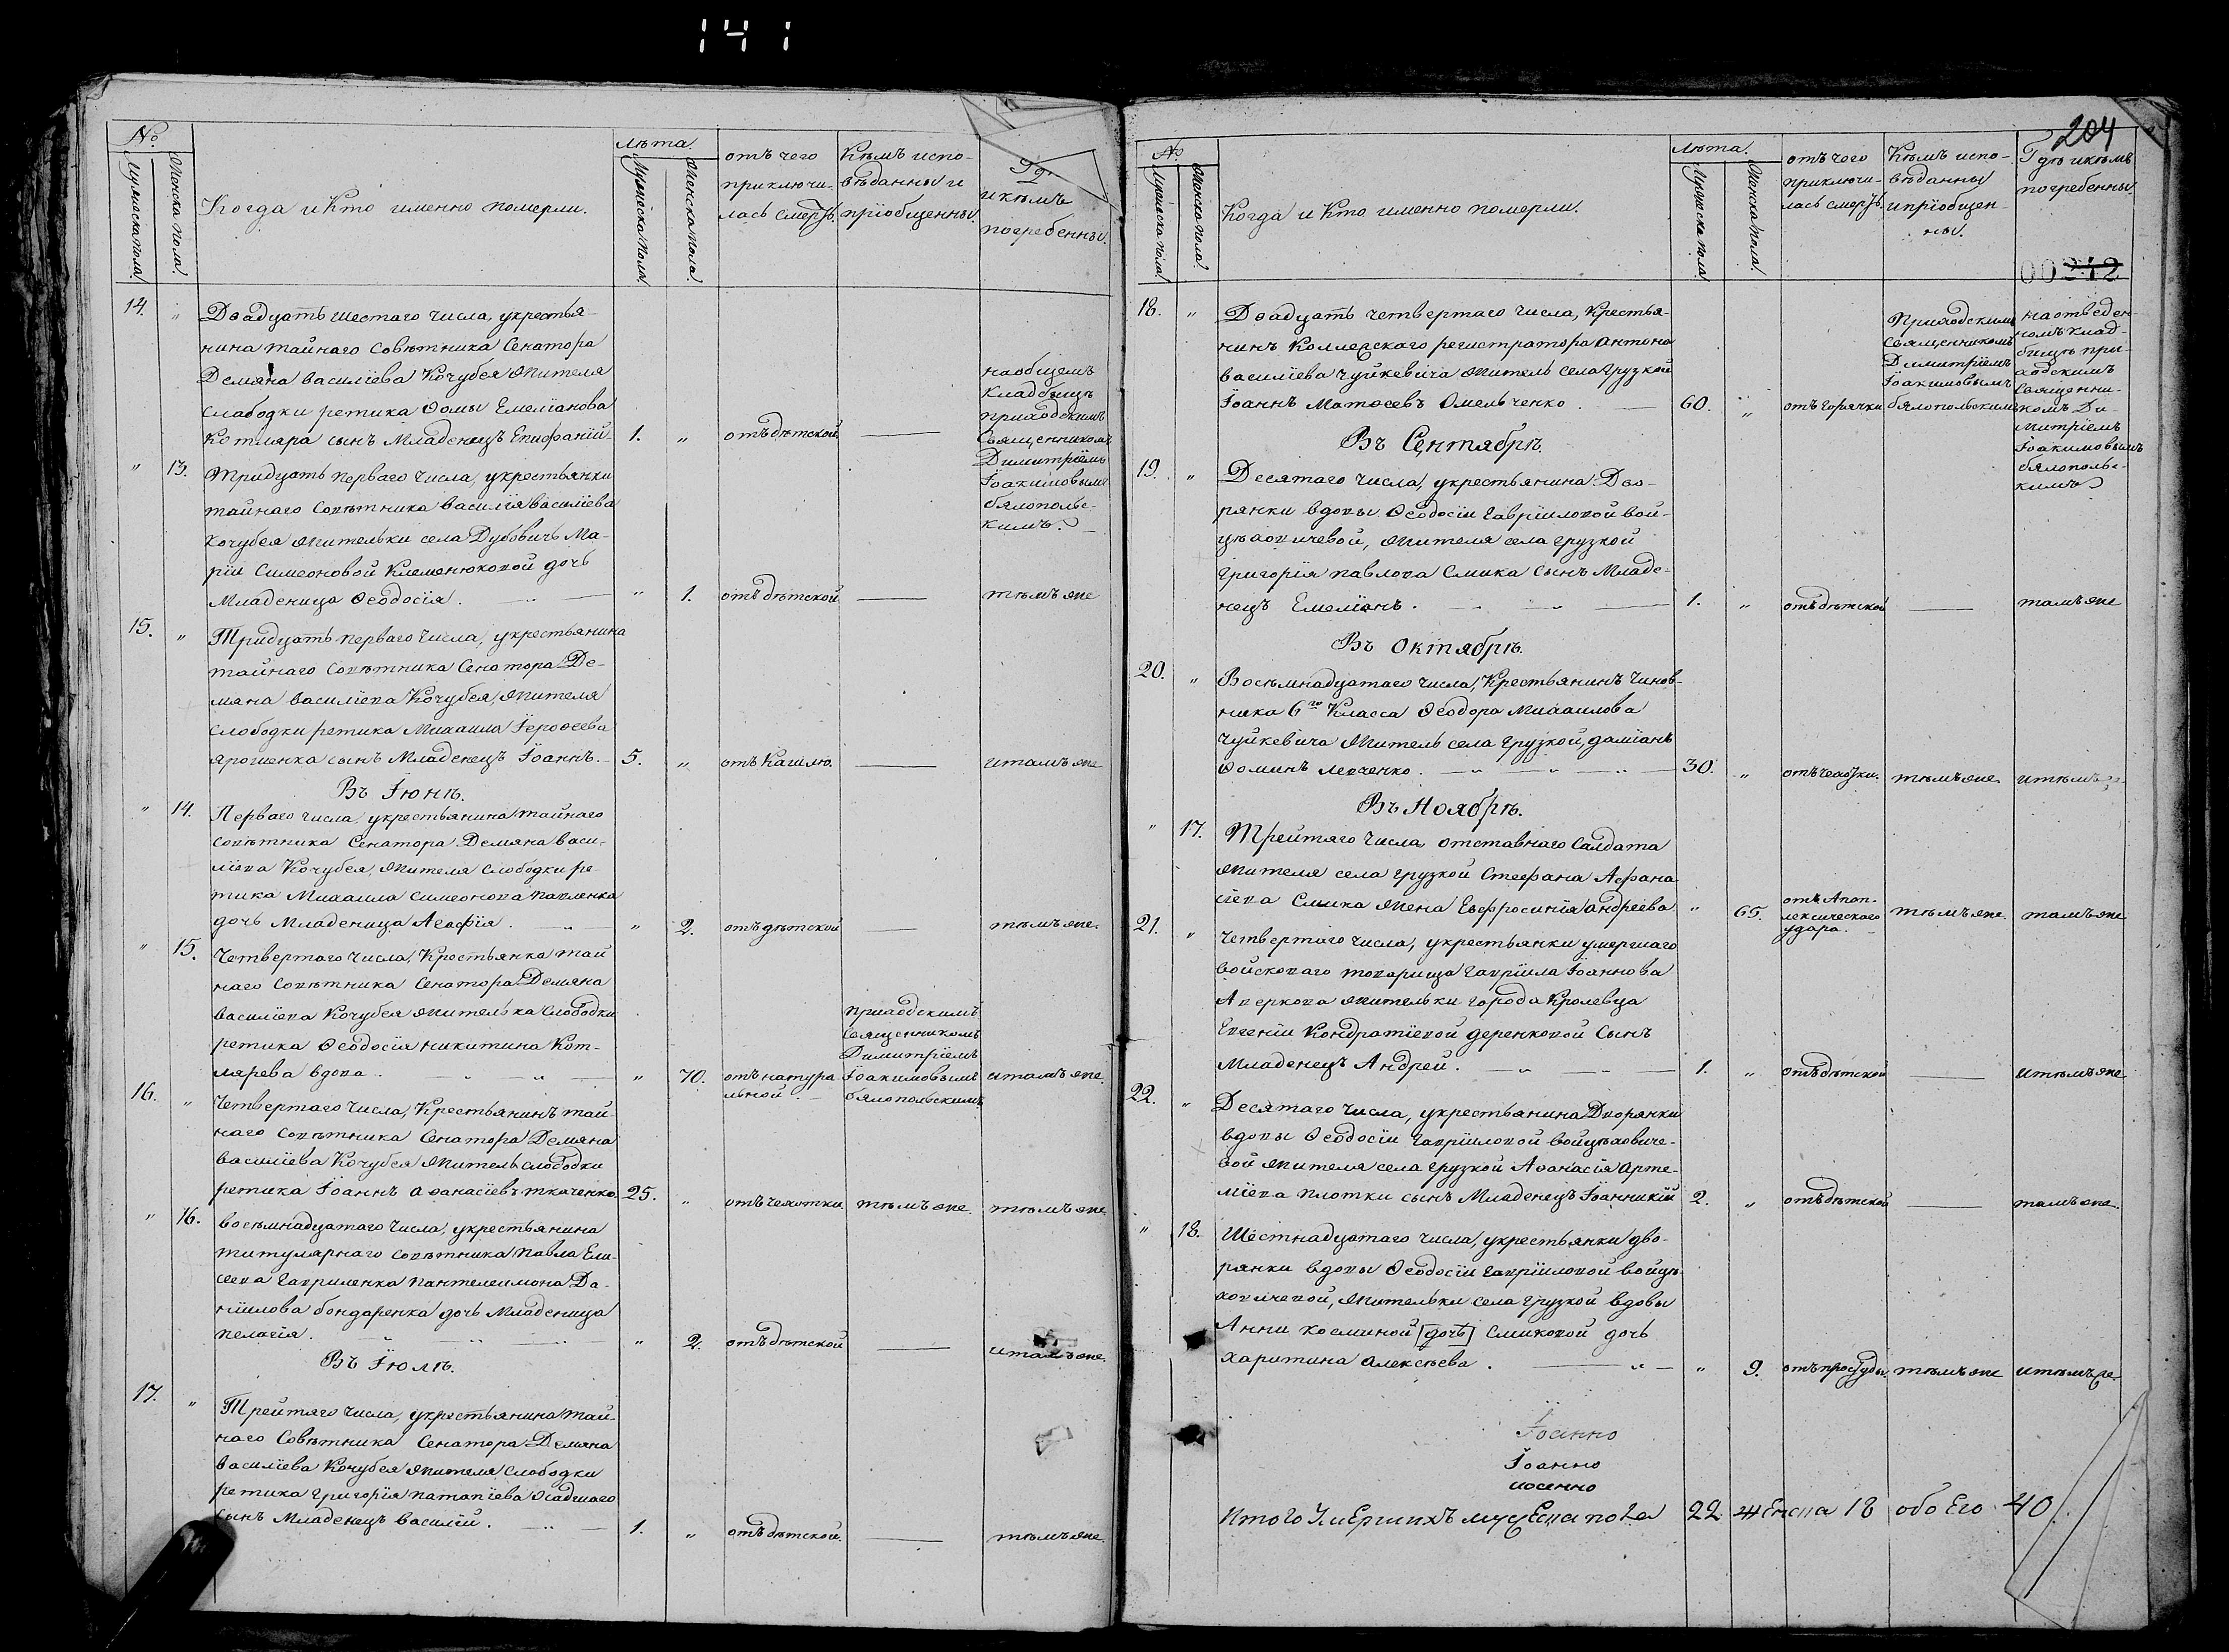 141
№
Мужеска пола.
Женска пола.
Когда и Кто именно померли.
лѣта.
Мужеска пола.
Женска пола.
отъ чего
приключи-
лась смерть.
Кѣмъ испо-
вѣданны и
прiобщенны.
и кѣмъ
погребенны.
14. „ Двадцать шестаго числа, укрестья-
нина тайнаго Совѣтника Сенатора
Демяна Василiева Кочубея жителя
слабодки ретика Ѳомы Емелiанова
Котляра сынъ Младенецъ Епифанiй. 1. „ отъ дѣтской —
наобщемъ
кладбищѣ
приходскимъ
Священникомъ
Димитрiемъ
Iоакимовымъ
бялополь-
скимъ.
„ 13. Тридцать перваго числа, укрестьянки
тайнаго Совѣтника Василiя Василiева
Кочубея жительки села Дубовичъ Ма-
рiи Симеоновой Клеменюковой дочь
Младеница Ѳеодосiя. „ 1. отъ дѣтской — тѣмъ же
15. „ Тридцать перваго числа, укрестьянина
тайнаго Совѣтника Сенатора Де-
мяна Василiева Кочубея, жителя
слободки ретика Михаила Iерофеева
Ярошенка сынъ Младенецъ Iоаннъ. 5. „ отъ Кашлю. — итамъ же
Въ Iюнѣ.
„ 14. Перваго числа, укрестьянина тайнаго
совѣтника Сенатора Демяна Васи-
лiева Кочубея, жителя слободки ре-
тика Михаила Симеонова Павленка
дочь Младеница Агафiя. „ 2. отъ дѣтской — тѣмъ же.
„ 15. Четвертаго числа, Крестьянка тай
наго Совѣтника Сенатора Демяна
Василiева Кочубея жителька Слободки
ретика Ѳеодосiя Никитина Кот-
лярева вдова. „ 70. отъ натура
льной.
приходскимъ
Священникомъ
Димитрiемъ
Iоакимовымъ
бялопольскимъ.
итамъ же.
16. „ Четвертаго числа, Крестьянинъ тай-
наго Совѣтника Сенатора Демяна
Василiева Кочубея Житель слободки
ретика Iоаннъ Аѳанасiевъ ткаченко. 25. „ отъ чехотки. тѣмъ же. тѣмъ же.
„ 16. Восѣмнадцатаго числа, укрестьянина
титулярнаго совѣтника Павла Ели-
сеева Гавриленка Пантелеимона Да-
нiилова бондаренка дочь Младеница
Пелагiя. „ 2. отъ дѣтской — итамъ же.
Въ Iюлѣ.
17. „ Трейтяго числа, укрестьянина тай-
наго Совѣтника Сенатора Демяна
Василiева Кочубея жителя Слободки
ретика Григорiя Патапiева Осадчаго
сынъ Младенецъ Василiй. 1. „ отъ дѣтской. — тѣмъ же.
204
№
Мужеска пола.
Женска пола.
Когда и Кто именно померли.
лѣта.
Мужеска пола.
Женска пола.
отъ чего
приключи-
лась смерть.
Кѣмъ испо-
вѣданны
и прiобщен-
ны.
Гдѣ и кѣмъ
погребенны.
00242
18. „ Двадцать четвертаго числа, Крестья-
нинъ Коллежскаго регистратора Антона
Василiева Чуйкевича житель села Грузкой
Iоаннъ Матфеевъ Омельченко. 60. „ отъ Горячки
Приходскимъ
Священникомъ
Димитрiемъ
Iоакимовымъ
бялопольскимъ
на отведен-
номъ клад-
бищѣ при-
ходскимъ
Священни-
комъ Ди-
митрiемъ
Iоакимовымъ
бялополь-
скимъ
Въ Сентябрѣ.
19. „ Десятаго числа, укрестьянина Дво-
рянки вдовы Ѳеодосiи Гаврiиловой вой-
цѣховичевой, жителя села грузкой
Григорiя Павлова Смика сынъ Младе-
нецъ Емелiянъ. 1. „ отъ дѣтской — тамъ же
Въ Октябрѣ.
20. „ Восѣмнадцатаго числа, Крестьянинъ Чинов-
ника 6го Класса Ѳеодора Михаилова
Чуйкевича Житель села Грузкой, Дамiанъ
Ѳоминъ Левченко. 30. „ отъ чехотки. тѣмъ же. итѣмъ же
Въ Ноябрѣ.
„ 17. Трейтяго числа отставнаго Салдата
жителя села Грузкой Стефана Афана
сiева Смика жена Евфросинiя Андреева „ 65. отъ Апоп-
лексическаго
удара. тѣмъ же. тамъ же
21. „ Четвертаго числа, укрестьянки умершаго
войсковаго товарища Гаврiила Iоаннова
Аверкова жительки города Кролевца
Евгенiи Кондратiевой деренковой Сынъ
Младенецъ Андрей. 1. „ отъ дѣтской — итѣмъ же
22. „ Десятаго числа, укрестьянина Дворянки
вдовы Ѳеодосiи Гаврiиловой войцѣховиче-
вой жителя села Грузкой Аѳанасiя Арте-
мiева Плотки сынъ Младенецъ Iоанникiй 2. „ отъ дѣтской — тамъ же.
„ 18. Шестнадцатаго числа, укрестьянки дво-
рянки вдовы Ѳеодосiи Гаврiиловой войцѣ
ховичевой, жительки села Грузкой вдовы
Анны Косминой [дочь] Смиковой дочь
Харитина Алексѣева. „ 9. отъ простуды. тѣмъ же итѣмъ же
Iоанно
Iоанно
иосенно
Итого Умершихъ мужеска пола 22 женска 18 обоего 40